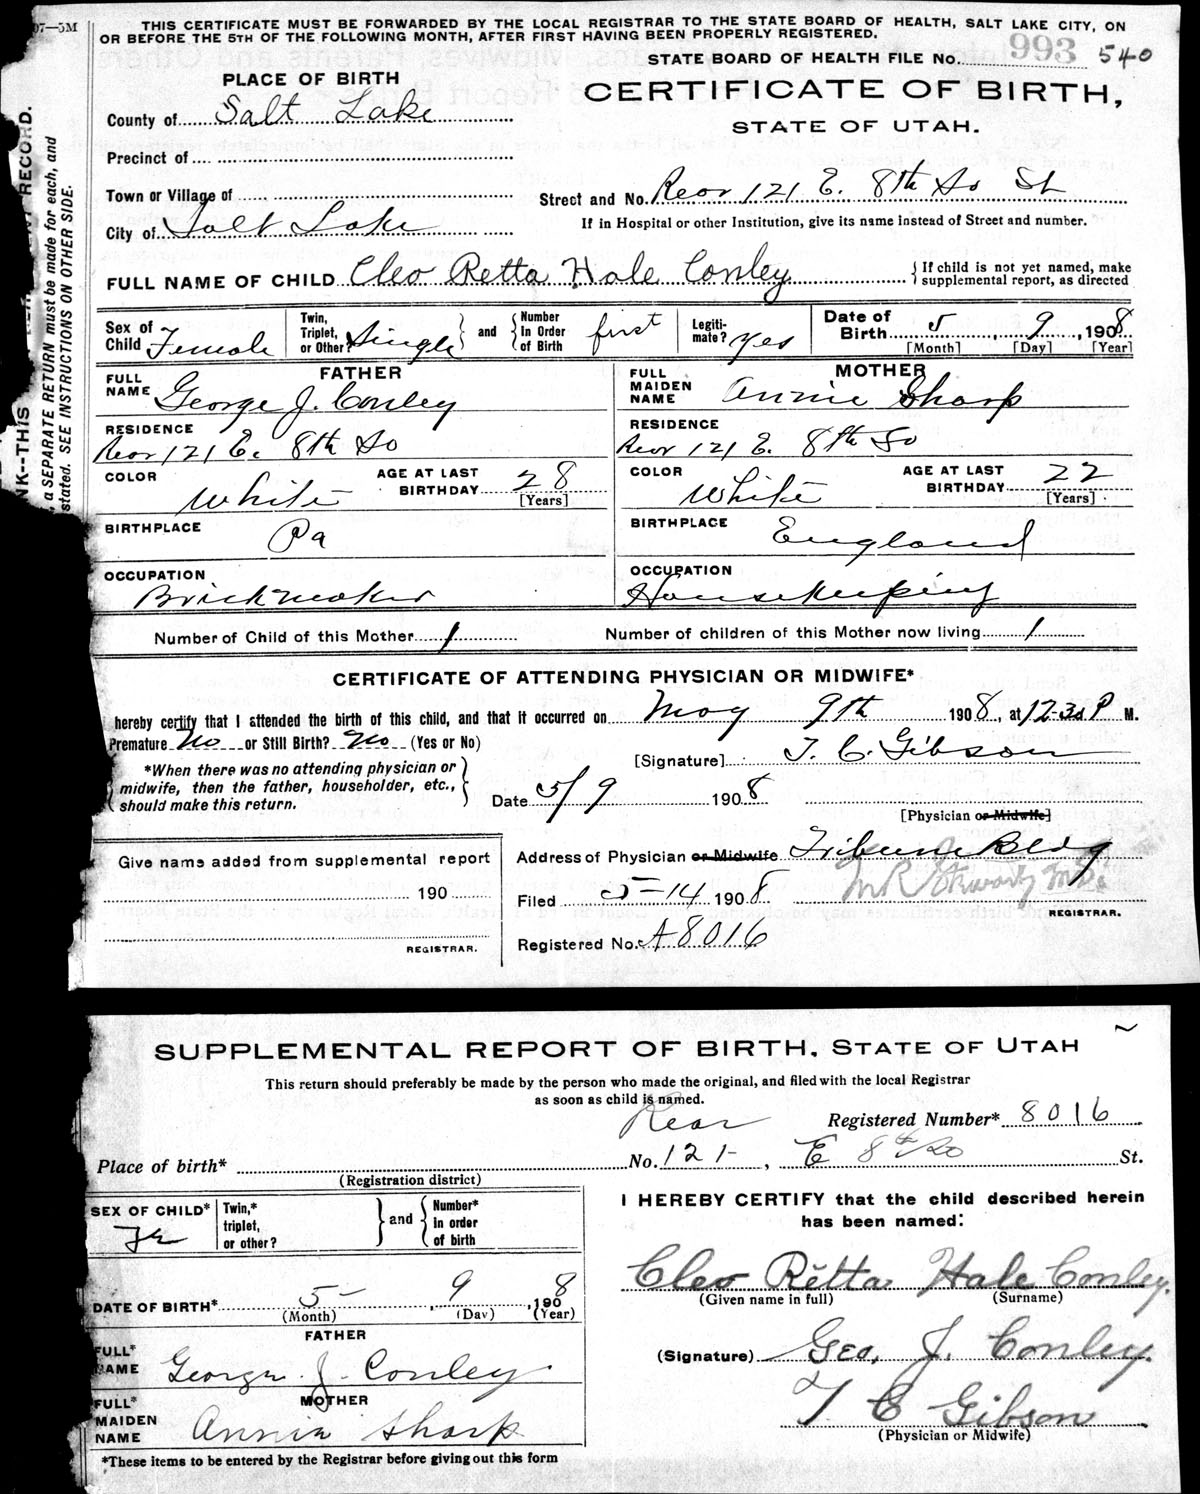 07—5M
THIS CERTIFICATE MUST BE FORWARDED BY THE LOCAL REGISTRAR TO THE STATE BOARD OF HEALTH, SALT LAKE CITY, ON
OR BEFORE THE 5TH OF THE FOLLOWING MONTH, AFTER FIRST HAVING BEEN PROPERLY REGISTERED.
STATE BOARD OF HEALTH FILE No. 993 540
PLACE OF BIRTH
CERTIFICATE OF BIRTH,
STATE OF UTAH.
County of Salt Lake
Precinct of
Town or Village of
Street and No. Rear 121 E. 8th So St
City of Salt Lake
If in Hospital or other Institution, give its name instead of Street and number.
FULL NAME OF CHILD Cleo Retta Hale Conley
{ If child is not yet named, make
supplemental report, as directed
RECORD.
NK--THIS
, a SEPARATE RETURN must be made for each, and
stated. SEE INSTRUCTIONS ON OTHER SIDE.
Sex of Child Female
Twin, Triplet, or Other? Single } and { Number In Order of Birth first
Legiti-mate? yes
Date of Birth 5 9, 1908
[Month] [Day] [Year]
FATHER
FULL NAME George J. Conley
RESIDENCE
Rear 121 E. 8th So
COLOR White
AGE AT LAST BIRTHDAY 28
[Years]
BIRTHPLACE
Pa
OCCUPATION
Brickmaker
MOTHER
FULL MAIDEN NAME Annie Sharp
RESIDENCE
Rear 121 E. 8th So
COLOR White
AGE AT LAST BIRTHDAY 22
[Years]
BIRTHPLACE
England
OCCUPATION
Housekeeping
Number of Child of this Mother 1
Number of children of this Mother now living 1
CERTIFICATE OF ATTENDING PHYSICIAN OR MIDWIFE*
hereby certify that I attended the birth of this child, and that it occurred on May 9th 1908, at 12-30 P M.
Premature No or Still Birth? No (Yes or No)
[Signature] T. C. Gibson
*When there was no attending physician or
midwife, then the father, householder, etc.,
should make this return.
Date 5/9 1908
[Physician or Midwife]
Give name added from supplemental report
190
REGISTRAR.
Address of Physician or Midwife Tribune Bldg
Filed 5-14 1908
REGISTRAR.
Registered No. A8016
SUPPLEMENTAL REPORT OF BIRTH, STATE OF UTAH
This return should preferably be made by the person who made the original, and filed with the local Registrar
as soon as child is named.
Registered Number* 8016
Rear
Place of birth* No. 121-, E 8th So St.
(Registration district)
SEX OF CHILD* Fe
Twin,* triplet, or other? } and { Number* in order of birth
DATE OF BIRTH* 5- , 9 , 1908
(Month) (Day) (Year)
FATHER
FULL* NAME George J. Conley
MOTHER
FULL* MAIDEN NAME Annie Sharp
*These items to be entered by the Registrar before giving out this form
I HEREBY CERTIFY that the child described herein
has been named:
Cleo Retta Hale Conley.
(Given name in full) (Surname)
(Signature) Geo. J. Conley.
T C Gibson
(Physician or Midwife)